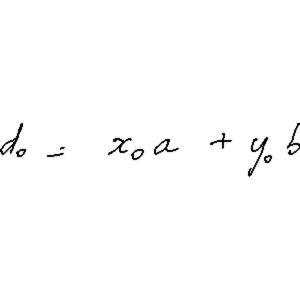 d₀ = x₀a + y₀b